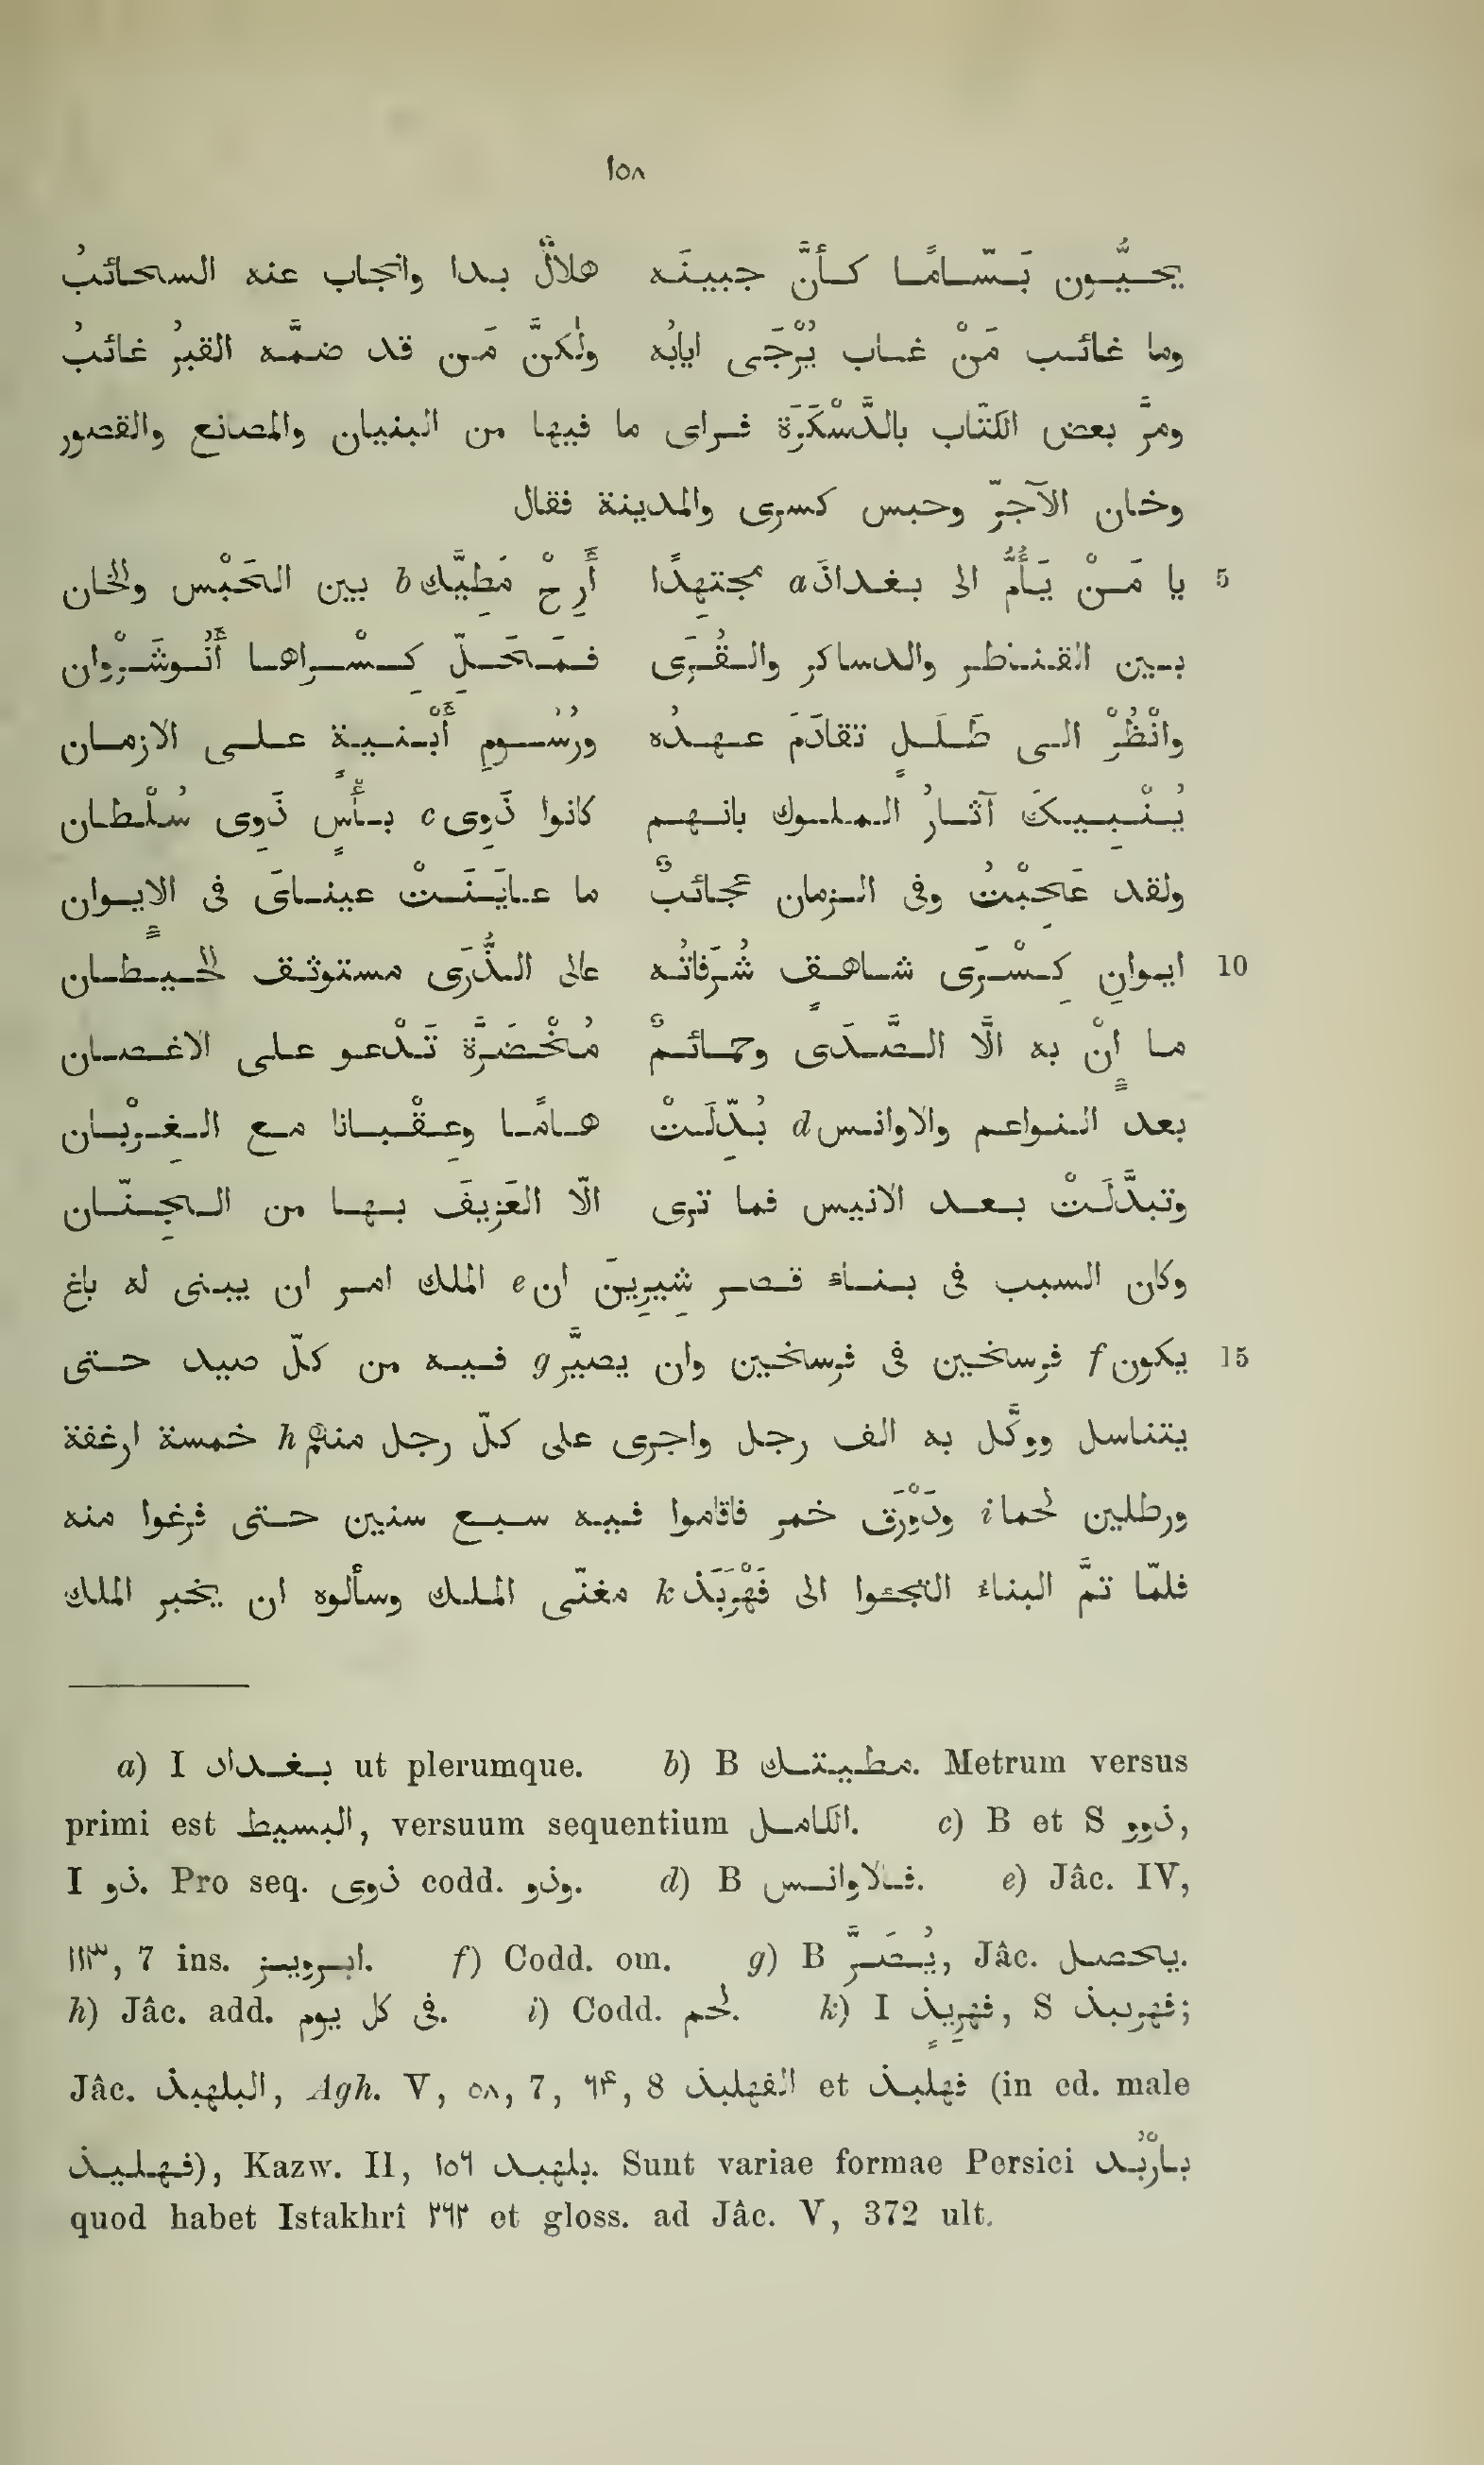 ١٥٨
يحيُّون بَسّامًا كأنَّ جبينَه هلالٌ بدا وانجاب عنه السحائبُ
وما غائب مَنْ غاب يُرْجَى ايابُه ولٰكنَّ مَن قد ضمَّه القبرُ غائبُ
ومرَّ بعض الكتّاب بالدَّسْكَرَة فراى ما فيها من البنيان والمصانع والقصور
وخان الآجرّ وحبس كسرى والمدينة فقال
5 يا مَنْ يَأُمُّ الى بغداذَ a مجتهِدًا أَرِحْ مَطِيَّك b بين الحَبْس والخان
بين القناطر والدساكر والقُرَى فمَحَلِّ كِسْراها أَنُوشَرْوان
وانْظُرْ الى طَلَلٍ تقادَمَ عهدُه ورُسُومِ أَبْنيةٍ على الازمان
يُنْبِيكَ آثارُ الملوك بانهم كانوا ذَوِى c بأسٍ ذَوِى سُلْطان
ولقد عَجِبْتُ وفى الزمان عجائبٌ ما عايَنَتْ عيناىَ فى الإيوان
10 ايوانِ كِسْرَى شاهقٍ شُرَفاتُه عالى الذُّرَى مستوثق الحيطان
ما إِنْ به الَّا الصَّدَى وحمائمٌ مُخْضَرَّة تَدْعو على الاغصان
بعد النواعم والاوانس d بُدِّلَتْ هامًا وعِقْبانا مع الغِرْبان
وتبدَّلَتْ بعد الانيس فما ترى الّا العَزِيفَ بها من الجِنّان
وكان السبب فى بناء قصر شِيرِينَ ان e الملك امر ان يبنى له باغ
15 يكون f فرسخين فى فرسخين وان يصيَّر g فيه من كلّ صيد حتى
يتناسل ووكَّل به الف رجل واجرى على كلّ رجل منهم h خمسة ارغفة
ورطلين لحما i ودَوْرَق خمر فاقاموا فيه سبع سنين حتى فرغوا منه
فلمّا تمَّ البناء التجئوا الى فَهْرَبَذ k مغنّى الملك وسألوه ان يخبر الملك
a) I بغداد ut plerumque. b) B مطيتك. Metrum versus
primi est البسيط, versuum sequentium الكامل. c) B et S ذوو,
I ذو. Pro seq. ذوى codd. وذو. d) B فالاوانس. e) Jâc. IV,
١١٣, 7 ins. ابرويز. f) Codd. om. g) B يُصَرَّ, Jâc. يحصل.
h) Jâc. add. فى كل يوم. i) Codd. لحم. k) I فهرِيذٍ, S فهربيذ;
Jâc. البلهبذ, Agh. V, ٥٨, 7, ٦۴, 8 الفهلبذ et فهلبذ (in ed. male
فهليذ), Kazw. II, ١٥٦ بلهبد. Sunt variae formae Persici بارْبُد
quod habet Istakhrî ٢٦٢ et gloss. ad Jâc. V, 372 ult.